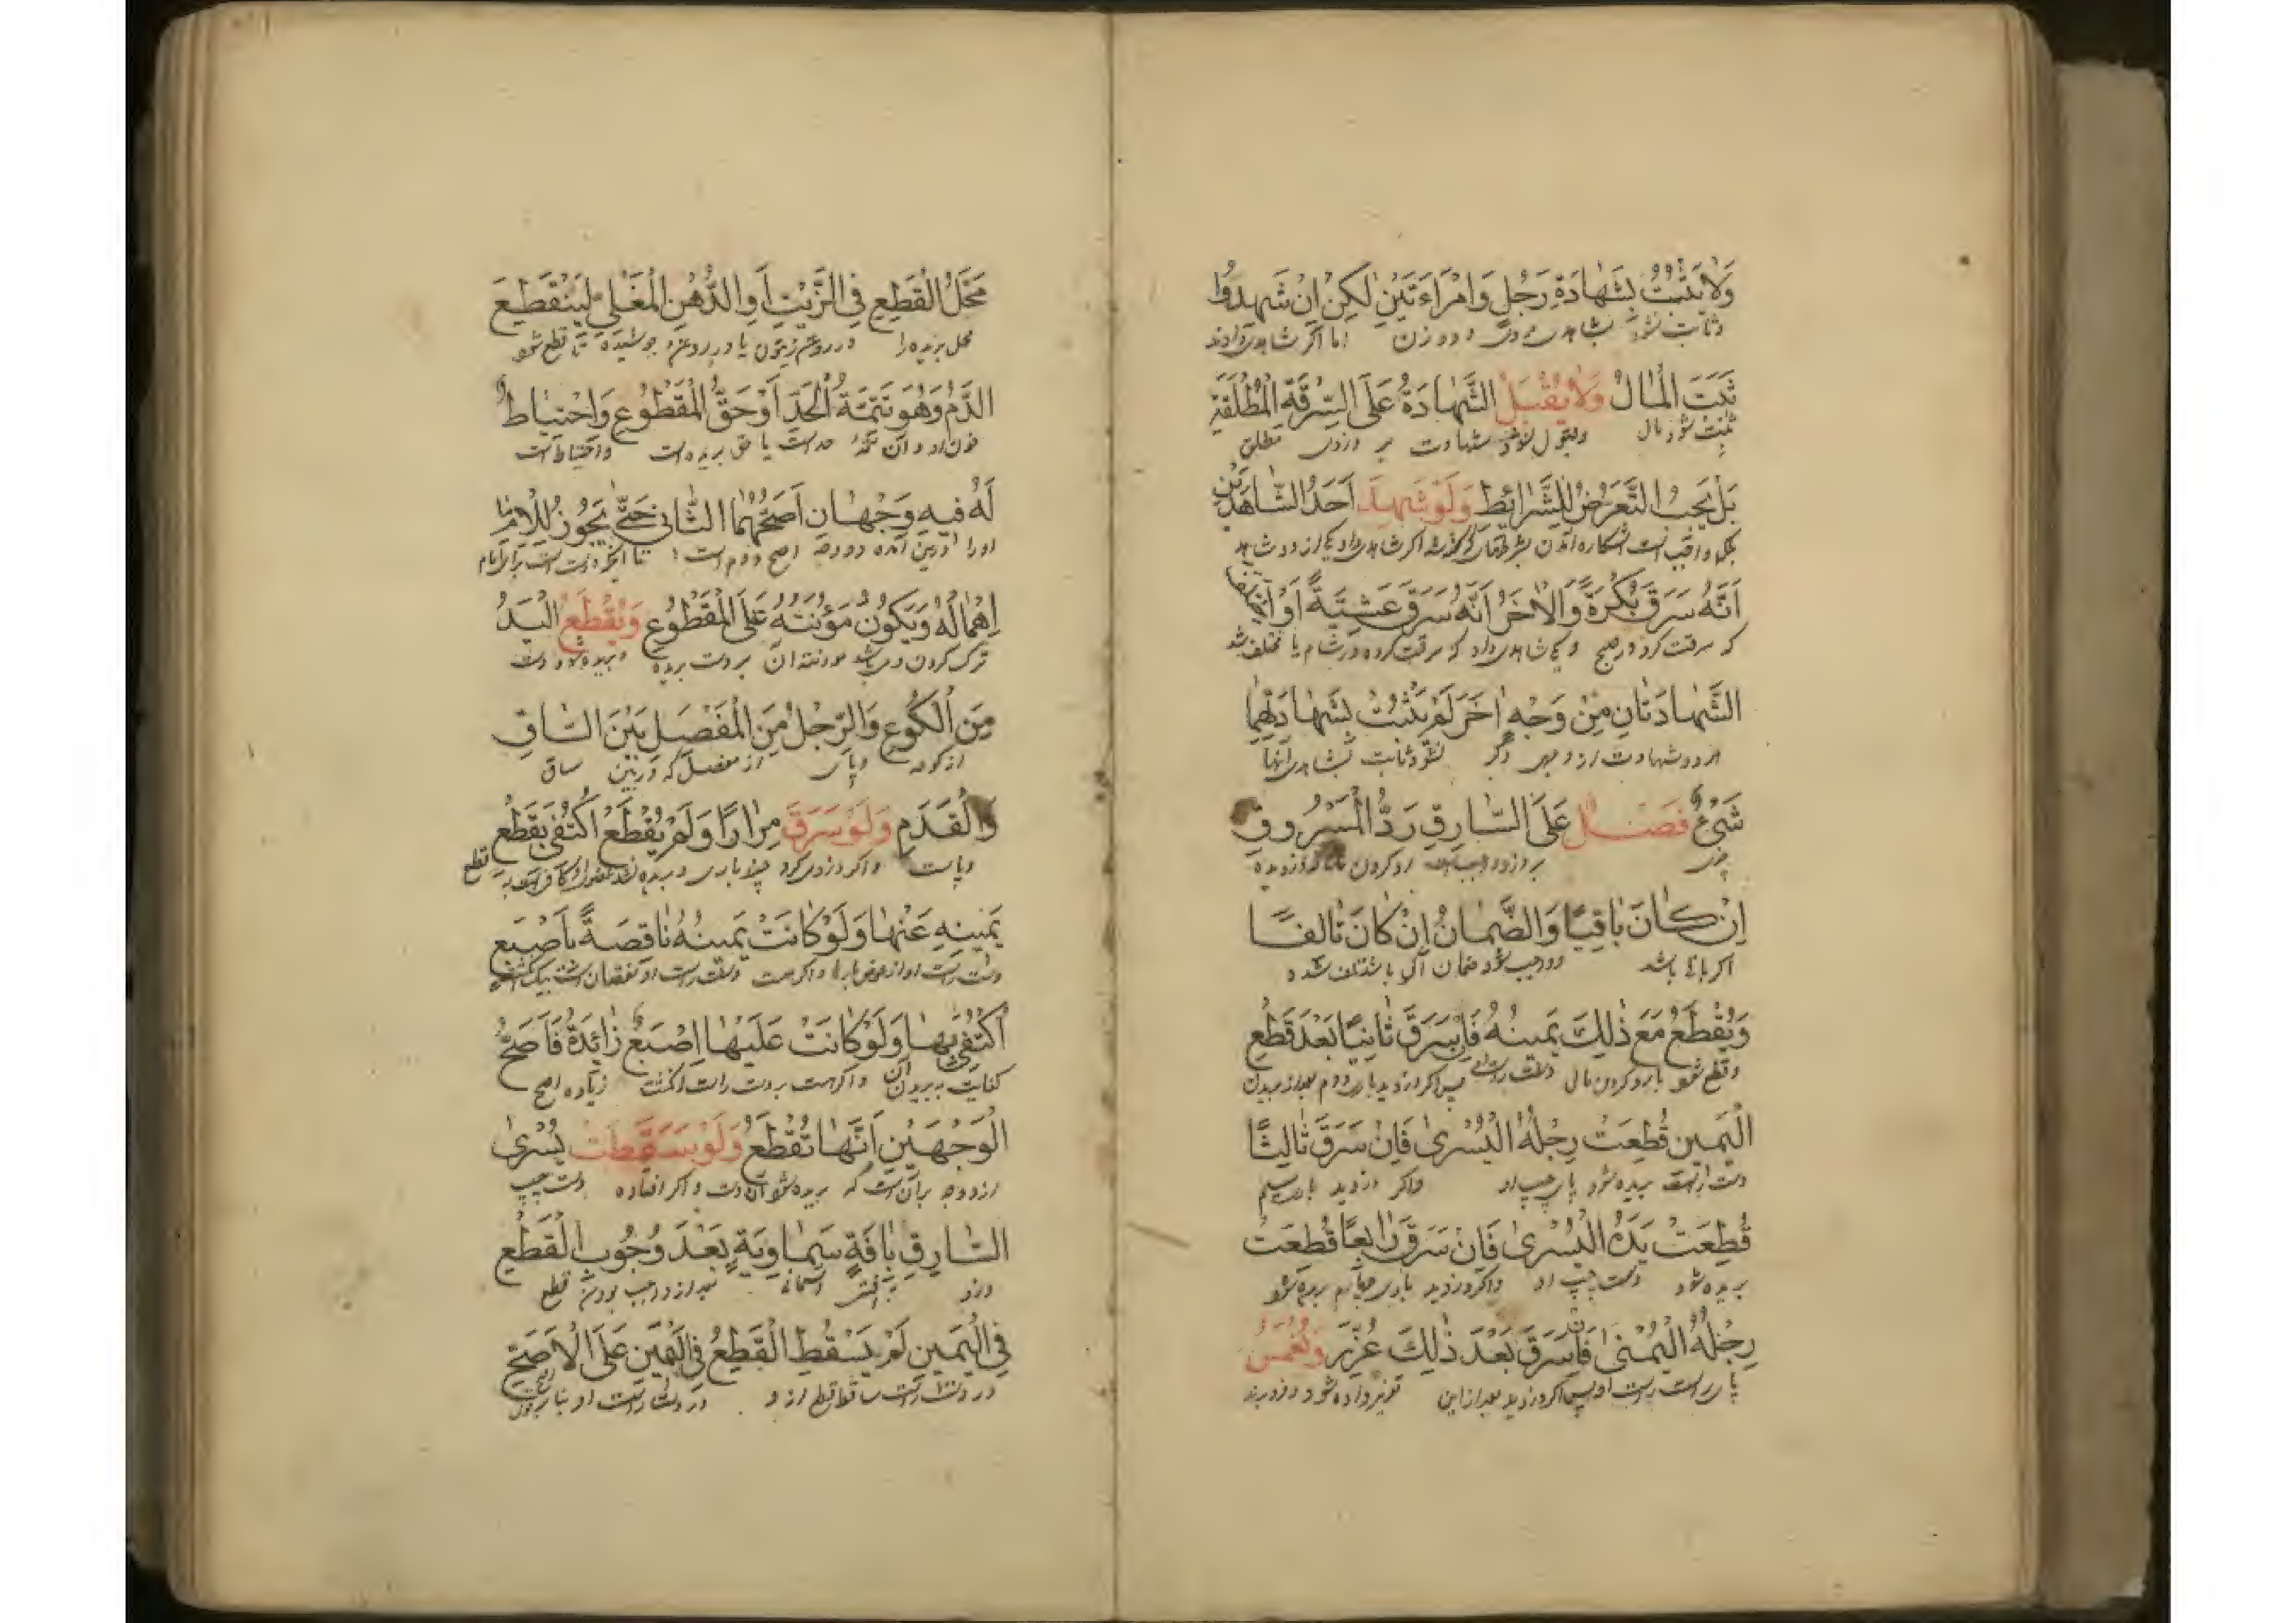 وَلَا يَثْبُتُ بِشَهَادَةِ رَجُلٍ وَامْرَاَءَتَيْنِ لٰكِنْ اِنْ شَهِدُوا
وثابت نشود بشاهدی مردی و دو زن اما اگر شاهدی دادند
ثَبَتَ الْمَالُ وَلَا يُقْبَلُ الشَّهَادَةُ عَلَى السَّرِقَةِ الْمُطْلَقَةِ
ثابت شود مال وقبول نشود شهادت بر دزدی مطلق
بَلْ يَجِبُ التَّعَرُّضُ لِلشَّرَائِطِ وَلَوْ شَهِدَ اَحَدُ الشَّاهِدَيْنِ
اَنَّهُ سَرَقَ بُكْرَةً وَالْاٰخَرُ اَنَّهُ سَرَقَ عَشِيَّةً اَوْ
که سرقت کرد در صبح و یکی شاهدی داد که سرقت کرده در شام یا مختلف شد
الشَّهَادَتَانِ مِنْ وَجْهٍ اٰخَرَ لَمْ يَثْبُتْ بِشَهَادَتِهِمَا
هر دو شهادت از وجهی دگر نشود ثابت بشاهدی آنها
شَىْءٌ فَصْلٌ عَلَى السَّارِقِ رَدُّ الْمَسْرُوقِ
چیزی بر دزد واجب است رد کردن دزدیده
اِنْ كَانَ بَاقِيًا وَالضَّمَانُ اِنْ كَانَ تَالِفًا
اگر باقی باشد و واجب شود ضمان اگر باشد تلف شده
وَيُقْطَعُ مَعَ ذٰلِكَ يَمِينُهُ فَاِنْ سَرَقَ ثَانِيًا بَعْدَ قَطْعِ
وقطع شود با رد کردن مال دست راست پس اگر دزدید باری دوم بعد از بریدن
الْيَمِينِ قُطِعَتْ رِجْلُهُ الْيُسْرٰى فَاِنْ سَرَقَ ثَالِثًا
دست راست بریده شود پای چپ او واگر دزدید باری سیم
قُطِعَتْ يَدُهُ الْيُسْرٰى فَاِنْ سَرَقَ رَابِعًا قُطِعَتْ
بریده شود دست چپ او واگر دزدید باری چهارم بریده شود
رِجْلُهُ الْيُمْنٰى فَاِنْ سَرَقَ بَعْدَ ذٰلِكَ عُزِّرَ وَيُغْمَسُ
پای راست او پس اگر دزدید بعد از این تعزیر داده شود و فرو برند
مَحَلُّ الْقَطْعِ فِى الزَّيْتِ اَوِ الدُّهْنِ الْمَغْلِيِّ لِيَنْقَطِعَ
محل بریده را در روغن زیتون یا در روغن جوشیده تا قطع شود
الدَّمُ وَهُوَ تَتِمَّةُ الْحَدِّ اَوْ حَقُّ الْمَقْطُوعِ وَاحْتِيَاطٌ
خون او و آن تتمه حد است یا حق بریده است واحتیاط است
لَهُ فِيهِ وَجْهَانِ اَصَحُّهُمَا الثَّانِى حَتّٰى يَجُوزُ لِلْاِمَامِ
اِهْمَالُهُ وَيَكُونُ مَؤُنَتُهُ عَلَى الْمَقْطُوعِ وَيُقْطَعُ الْيَدُ
ترک کردن و می باشد مؤنت آن بر دست بریده و بریده شود دست
مِنَ الْكُوعِ وَالرِّجْلُ مِنَ الْمَفْصَلِ بَيْنَ السَّاقِ
از کوع و پای از مفصل که در بین ساق
وَالْقَدَمِ وَلَوْ سَرَقَ مِرَارًا وَلَمْ يُقْطَعْ اكْتُفِىَ بِقَطْعِ
يَمِينِهِ عَنْهَا وَلَوْ كَانَتْ يَمِينُهُ نَاقِصَةً بِاَصْبَعٍ
اكْتُفِىَ بِهَا وَلَوْ كَانَتْ عَلَيْهَا اِصْبَعٌ زَائِدَةٌ فَاَصَحُّ
کفایت به بریدن آن واگر هست بر دست راست انگشت زیاده اصح
الْوَجْهَيْنِ اَنَّهَا تُقْطَعُ وَلَوْ سَقَطَتْ يُسْرٰى
از دو وجه بر آن است که بریده شود آن دست واگر افتاده دست چپ
السَّارِقِ بِاٰفَةٍ سَمَاوِيَّةٍ بَعْدَ وُجُوبِ الْقَطْعِ
دزد به آفتی آسمانی بعد از واجب بودن قطع
فِى الْيَمِينِ لَمْ يَسْقُطِ الْقَطْعُ فِى الْيَمِينِ عَلَى الْاَصَحِّ